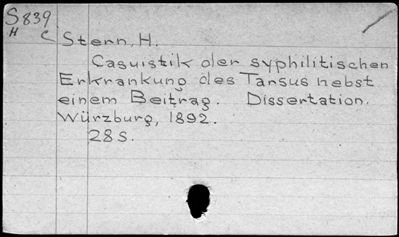 S839
H C
Stern, H.
Casuistik der syphilitischen
Erkrankung des Tarsus nebst
einem Beitrag. Dissertation.
Würzburg, 1892.
28 S.